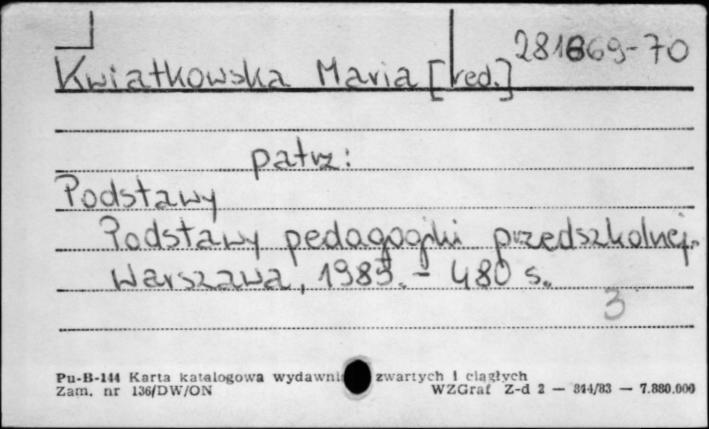 281869-70
Kwiatkowska Maria [red.]
patrz:
Podstawy
Podstawy pedagogiki przedszkolnej.
Warszawa, 1983. - 480 s.
3
Pu-B-144 Karta katalogowa zwartych i ciągłych
Zam. nr 136/DW/ON WZGraf Z-d 2 — 344/83 — 7.880.000